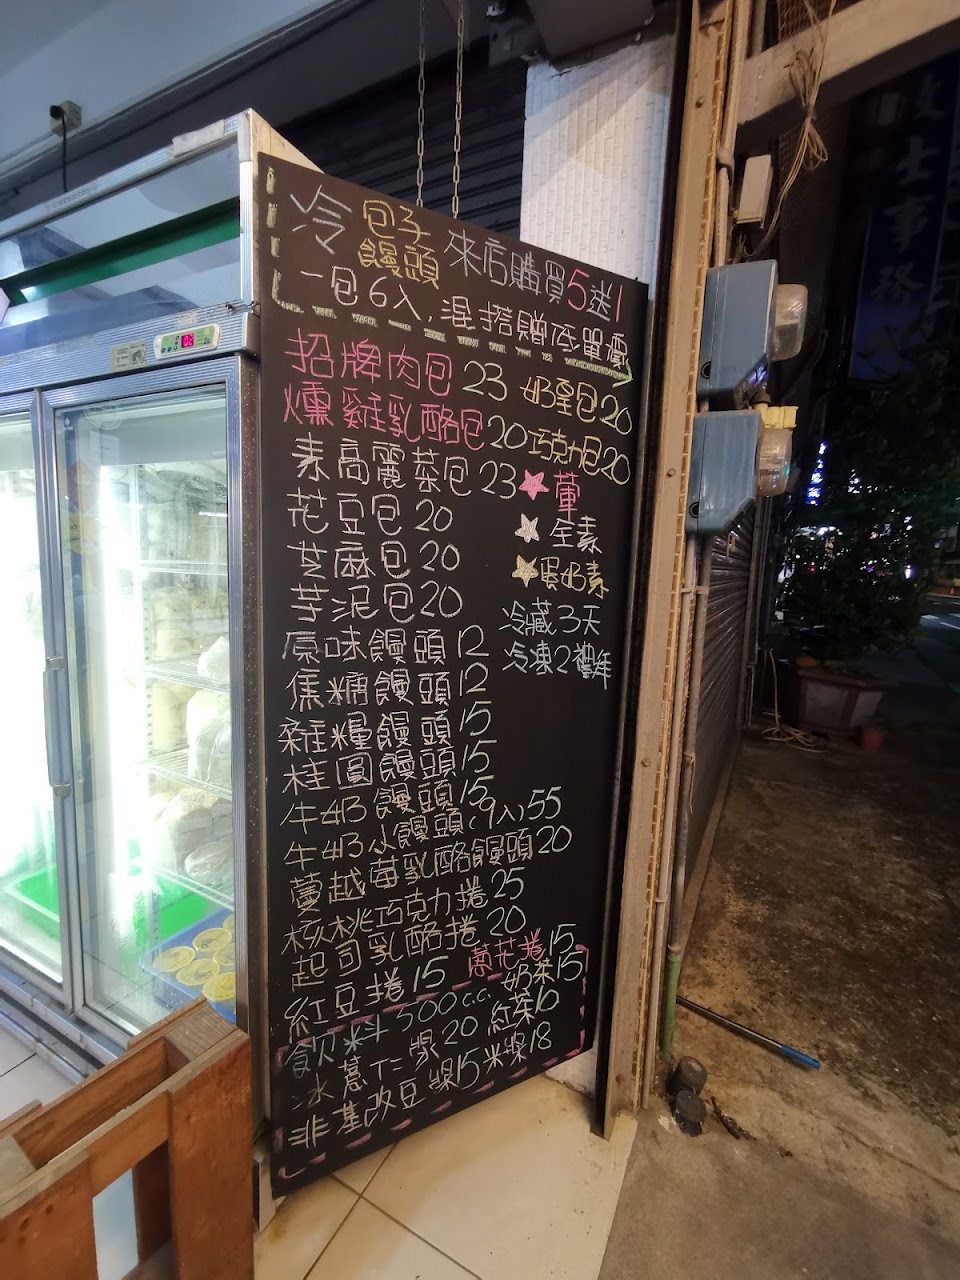 冷 包子 饅頭 來店購買5送1
一包6入,混搭贈低單價
招牌肉包 23 奶皇包20
燻雞乳酪包20 巧克力包20
素高麗菜包 23 ★葷
花豆包 20 ☆全素
芝麻包 20 ★蛋奶素
芋泥包20 冷藏3天
原味饅頭12 冷凍2禮拜
焦糖饅頭12
雜糧饅頭15
桂圓饅頭15
牛奶饅頭15
牛奶小饅頭(9入)55
蔓越莓乳酪饅頭20
核桃巧克力捲25
起司乳酪捲20
紅豆捲15 蔥花捲15
飲料300c.c. 奶茶15
冰薏仁漿20 紅茶10
非基改豆漿15 米漿18
文士事務